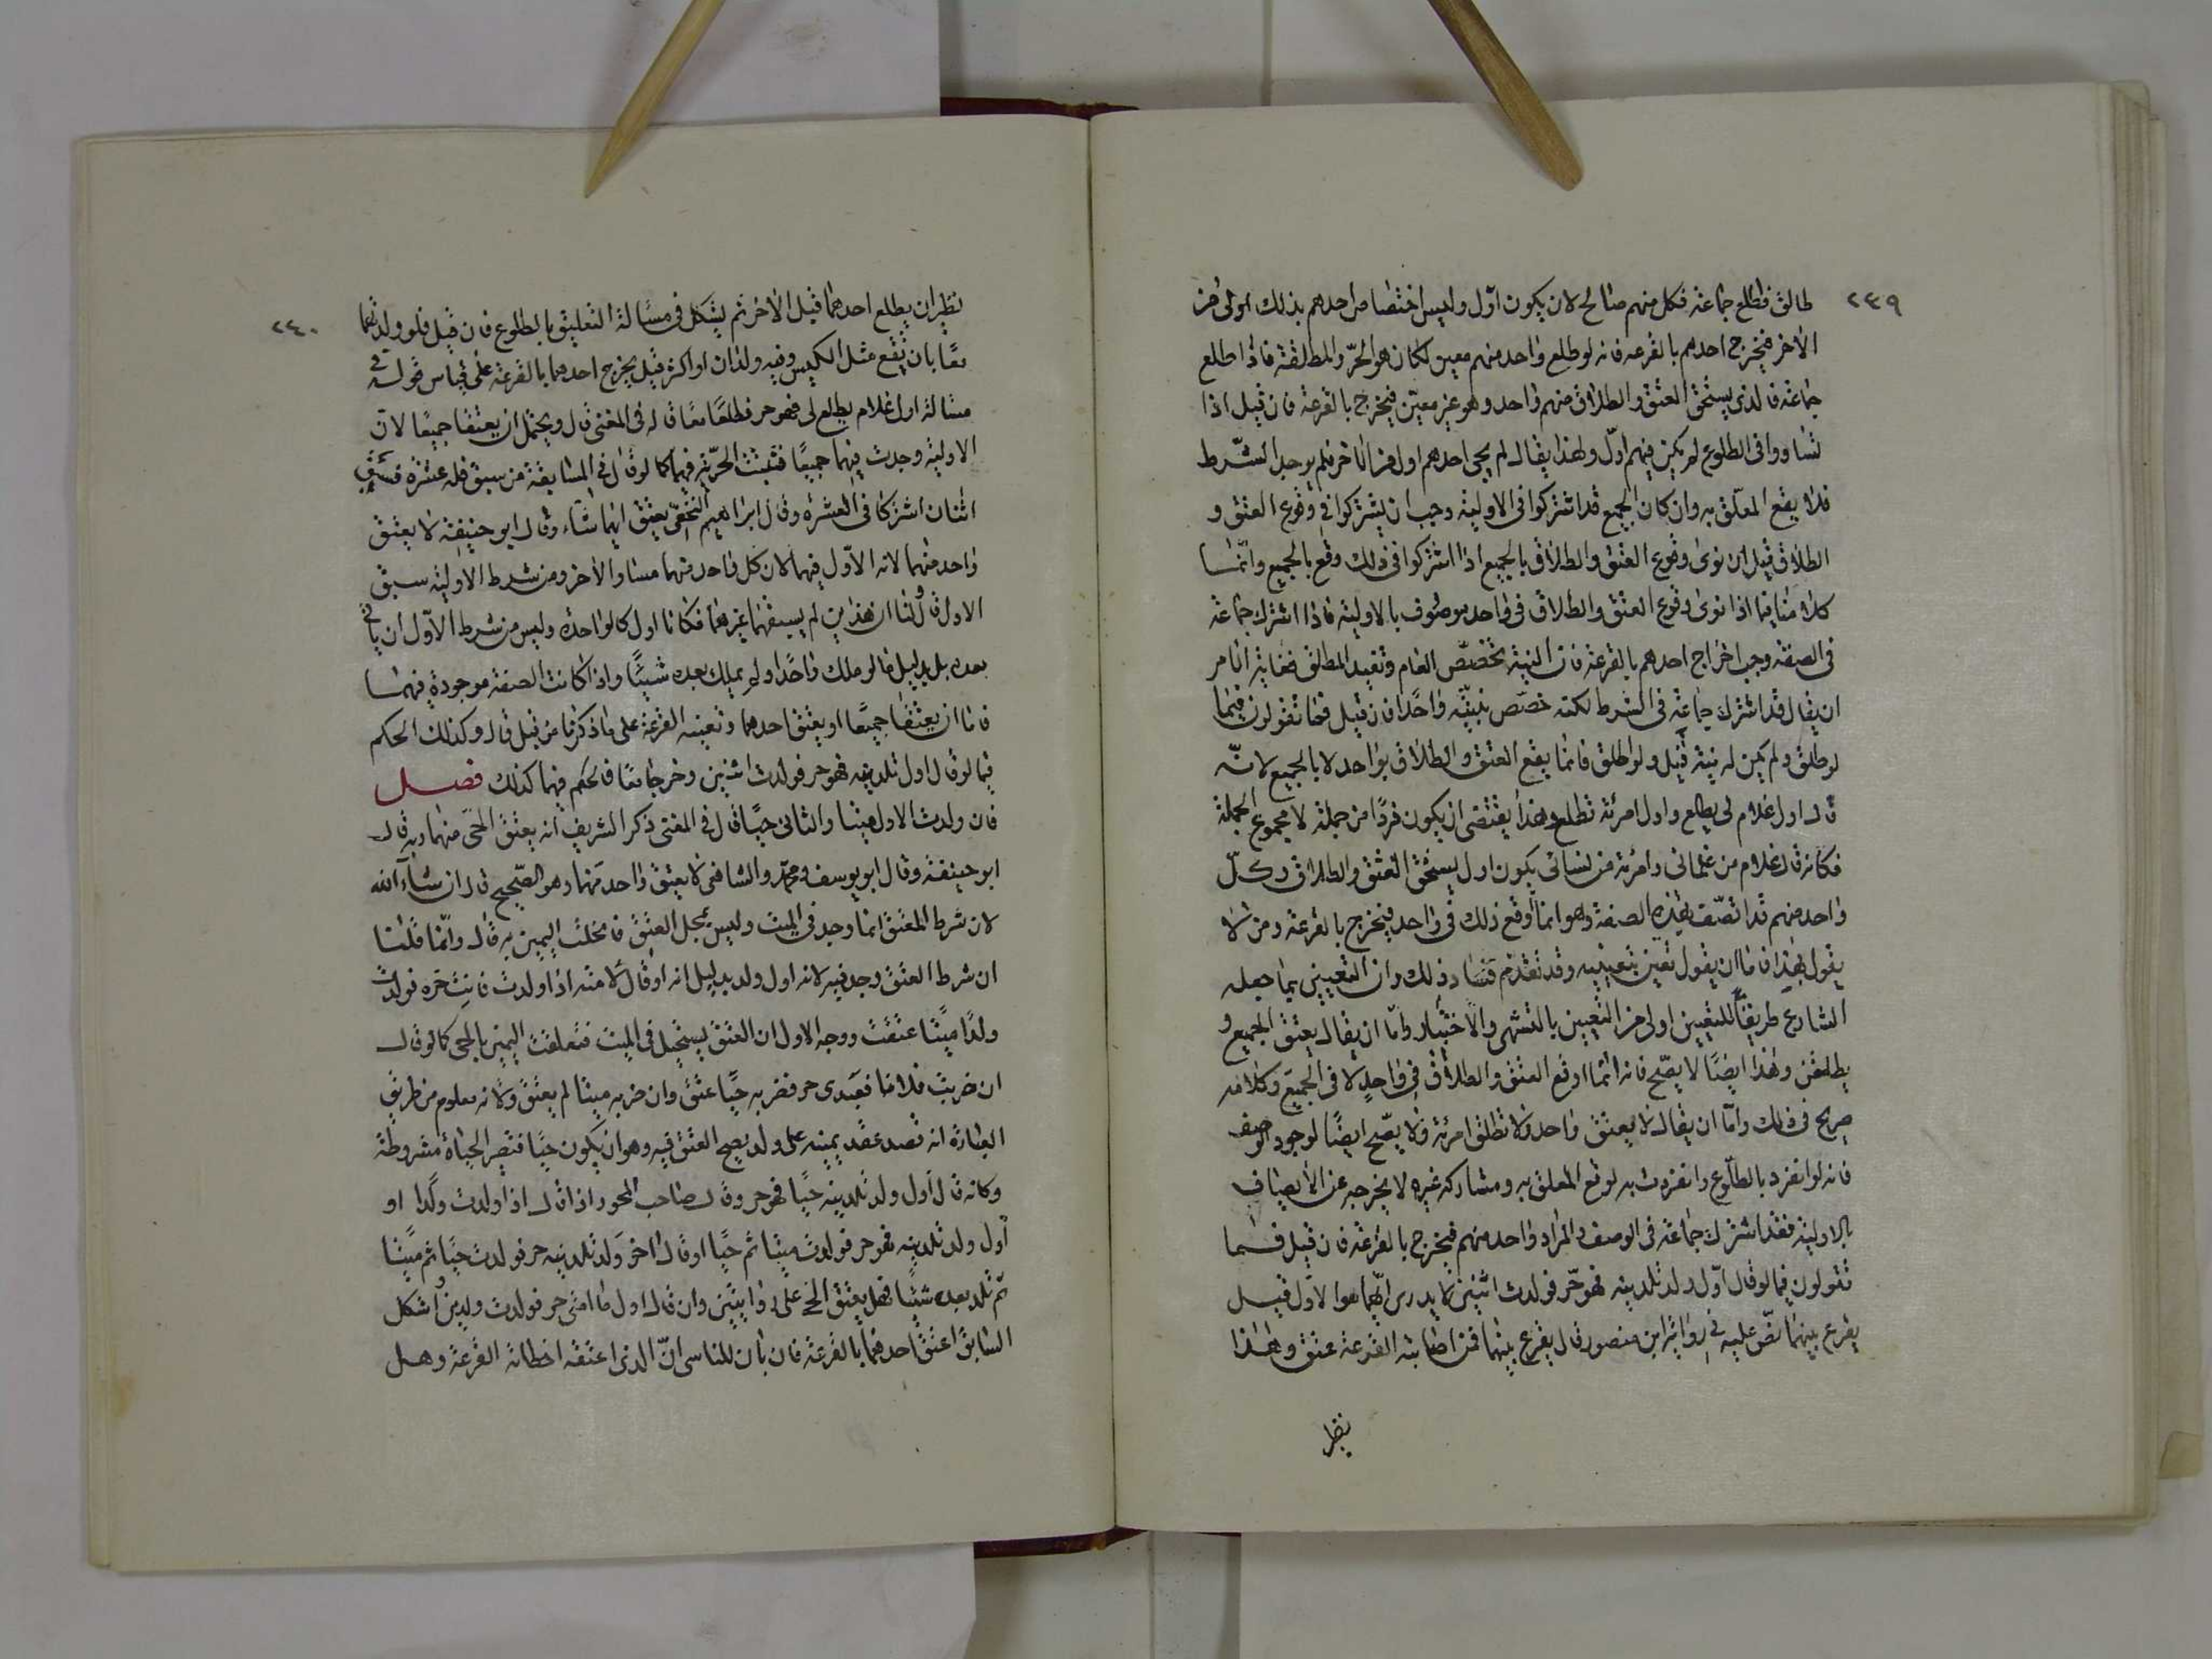 ٢٣٩
طالق فطلع جماعة فكل منهم صالح لان يكون اول وليس اختصاص احدهم بذلك اولى من
الآخر فيخرج احدهم بالقرعه فانه لو طلع واحد منهم معين لكان هو الحرّ والمطلقة فاذا طلع
جماعة فالذي يستحق العتق والطلاق منهم واحد وهو غير معيّن فيخرج بالقرعة فان قيل اذا
تساووا في الطلوع لم يكن فيهم اول ولهذا يقال لم يجئ احدهم اول من الآخر فلم يوجد الشرط
فلا يقع المعلّق به وان كان الجميع قد اشتركوا في الاولية وجب ان يشتركوا في وقوع العتق و
الطلاق قيل ان نوى وقوع العتق والطلاق بالجميع اذا اشتركوا في ذلك وقع بالجميع وانّما
كلامنا فيما اذا نوى وقوع العتق والطلاق في واحد موصوف بالاولية فاذا اشترك جماعة
في الصفة وجب اخراج احدهم بالقرعة فان النية تخصّص العام وتقيد المطلق فغاية الامر
ان يقال قد اشترك جماعة في الشرط لكنه خصّص بنيّته واحدًا فان قيل فما تقولون فيما
لو طلق ولم يكن له نية قيل ولو اطلق فانما يقع العتق والطلاق بواحد لا بالجميع لانّه
قال اول غلام لي يطلع واول امرئة تطلع وهذا يقتضي ان يكون فردًا من جملة لا مجموع الجملة
فكانه قال غلام من غلماني وامرئة من نسائي يكون اول يستحق العتق والطلاق وكلّ
واحد منهم قد اتصّف بهذه الصفة وهو انما اوقع ذلك في واحد فيخرج بالقرعة ومن لا
يقول بهذا فاما ان يقول تعين بتعيينه وقد تقدم فساد ذلك وان التعيين بما جعله
الشارع طريقاً للتعيين اولى من التعيين بالتشهي والاختيار وامّا ان يقال يعتق الجميع و
يطلقن وهذا ايضًا لا يصّح فانه انما اوقع العتق والطلاق في واحدٍ لا في الجميع وكلامه
صريح في ذلك وامّا ان يقال لا يعتق واحد ولا تطلق امرئة ولا يصّح ايضًا لوجود الوصف
فانه لو انفرد بالطلوع وانفردت به لوقع المعلق به ومشاركة غيره لا يخرجه عن الاتصاف
بالاولية فقد اشترك جماعة في الوصف والمراد واحد منهم فيخرج بالقرعة فان قيل فما
تقولون فيما لو قال اوّل ولد تلدينه فهو حّر فولدت اثنين لا يدرى ايّهما هو الاوّل قيل
يقرع بينهما نصّ عليه في رواية ابن منصور قال يقرع بينهما فمن اصابته القرعة عتق وهذا
نظير
٢٤٠
نظير ان يطلع احدهما قبل الآخر ثم يشكل في مسئالة التعليق بالطلوع فان قيل فلو ولدتهما
معًا بان تقع مثل الكيس وفيه ولدان او اكثر قيل يخرج احدهما بالقرعة على قياس قوله في
مسالة اول غلام يطلع لي فهو حر فطلعا معًا قاله في المغني قال ويحتمل ان يعتقا جميعًا لانّ
الاولية وجدت فيهما جميعًا فتثبت الحرّية فيهما كما لو قال في المسابقة من سبق فله عشرة فسبق
اثنان اشتركا في العشرة وقال ابراهيم النخعّي يعتق ايهما شاء وقال ابو حنيفة لا يعتق
واحد منهما لانه لا اوّل فيهما لان كل واحد منهما مساو للآخر ومن شرط الاولية سبق
الاول ولنا ان هذين لم يسبقهما غيرهما فكانا اول كالواحدة وليس من شرط الاوّل ان ياتى
بعده بل بدليل ما لو ملك واحدًا ولم يملك بعده شيئًا واذا كانت الصفة موجودة فيهما
فاما ان يعتقا جميعًا او يعتق احدهما وتعينه القرعة على ما ذكرنا من قبل قال وكذلك الحكم
فيما لو قال اول تلدينه فهو حر فولدت اثنين وخرجا معًا فالحكم فيهما كذلك فصل
فان ولدت الاول ميتا والثاني حيًا قال في المغني ذكر الشريف انه يعتق الحىّ منهما وبه قال
ابو حنيفة وقال ابو يوسف ومحمد والشافعي لا يعتق واحد منهما وهو الصّحيح قال ان شاء الله
لان شرط المعتق انما وجد في الميت وليس بمحل العتق فانحلت اليمين به قال وانّما قلنا
ان شرط العتق وجد فيه لانه اول ولد بدليل انه لو قال لامته اذا ولدت فانتِ حرّه فولدت
ولدًا ميّتًا عتقت ووجه الاول ان العتق يستحيل في الميت فتعلقت اليمين بالحي كما لو قال
ان ضربت فلانا فعبدى حر فضربه حيًا عتق وان ضربه ميتا لم يعتق ولانه معلوم من طريق
العبارة انه قصد عقد يمينه على ولد يصح العتق فيه وهو ان يكون حيًا فتصير الحياة مشروطة
وكانه قال اول ولد تلدينه حيًا فهو حر وقال صاحب المحرر اذا قال اذا ولدت ولدا او
اول ولد تلدينه فهو حر فولدت ميتا ثم حيًا او قال آخر ولد تلدينه حر فولدت حيًا ثم ميّتا
ثم تلد بعده شئيًا فهل يعتق الحي على روايتين وان قال اول ما امتى حر فولدت ولدين واشكل
السابق اعتق احدهما بالقرعة فان بان للناسى انّ الذى اعتقه اخطاته القرعة وهل